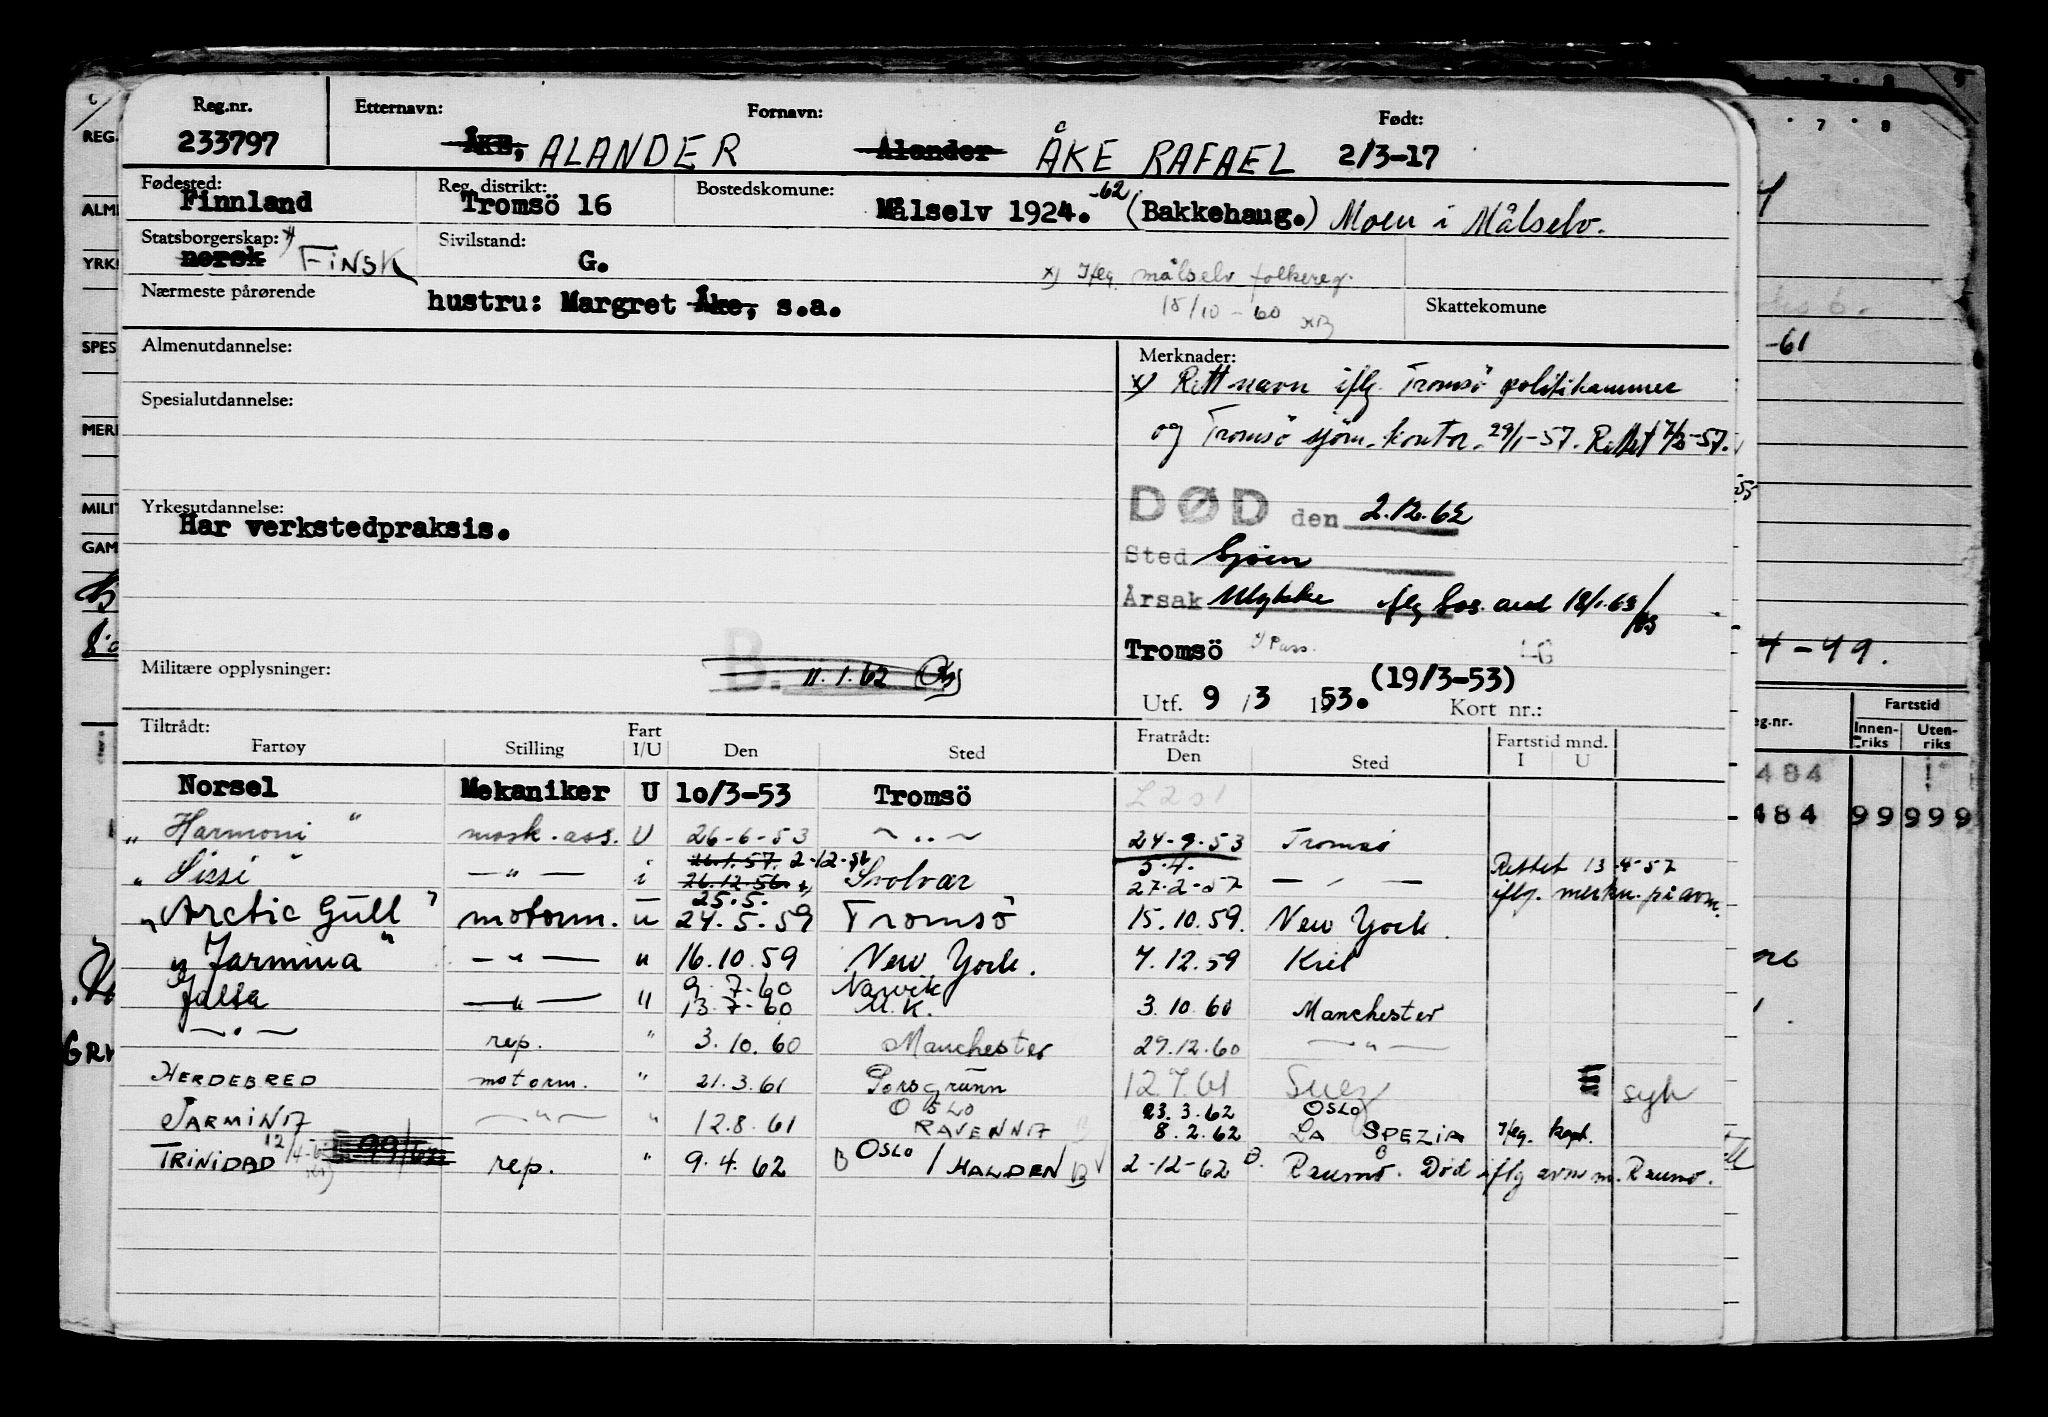 Reg.nr. Etternavn: Fornavn: Født:
233797 Åke, ALANDER Alander ÅKE RAFAEL 2/3-17
Fødested: Reg. distrikt: Bostedskomune:
Finnland Tromsö 16 Målselv 1924. -62 (Bakkehaug.) Moen i Målselv.
Statsborgerskap: x) Sivilstand:
norsk FINSK G. x) Iflg. målselv folkereg.
Nærmeste pårørende 18/10-60
hustru: Margret Åke, s.a. Skattekomune
Almenutdannelse: Merknader:
x) Rett navn iflg. Tromsö politikammer
Spesialutdannelse:
og Tromsö sjöm.kontor. 29/1-57. Rettet 7/2-57.
DØD den 2.12.62
Yrkesutdannelse:
Har verkstedpraksis.
Sted Sjøen
Årsak Ulykke iflg Sos. avd 18/1.63
Tromsö
Militære opplysninger: B. 11.1.62
(19/3-53)
Utf. 9 /3 1953. Kort nr.:
Tiltrådt: Fart Fratrådt: Fartstid mnd.
Fartøy Stilling I/U Den Sted Den Sted I U
Norsel Mekaniker U 10/3-53 Tromsö
"Harmoni" mask.ass. U 26-6-53 — " — 24-9-53 Tromsø
"Sissi" — " — i 26.1.57. 2-12-56 26.12.56. Svolvær 5.4. 27-2-57 — " — Rettet 13-4-57 iflg. merkn. på avm.
"Arctic Gull" motorm. u 25.5. 24.5.59 Tromsö 15.10.59. New York.
"Jarmina" — " — " 16.10.59 New York. 7.12.59 Kiel
Jalta — " — " 9.7-60 13-7-60 Narvik U.K. 3.10.60 Manchester
— " — rep. " 3.10.60 Manchester 29.12.60 — " —
HERDEBRED motorm. " 21.3.61 Porsgrunn 12.7.61 Suez syk
JARMINA — " — " 12.8.61 OSLO RAVENNA 23.3.62 8.2.62 OSLO LA SPEZIA Iflg. kapt.
TRINIDAD 99/62 rep. " 9.4.62 B OSLO / HALDEN B 2-12-62 B. Raumo. Död iflg avm m. Raumo.
REG.
ALM
YRK
SPES
MER
MILIT
GAM
-61
4-49.
Fartstid
eg.nr. Innenriks Utenriks
484
484 99 999